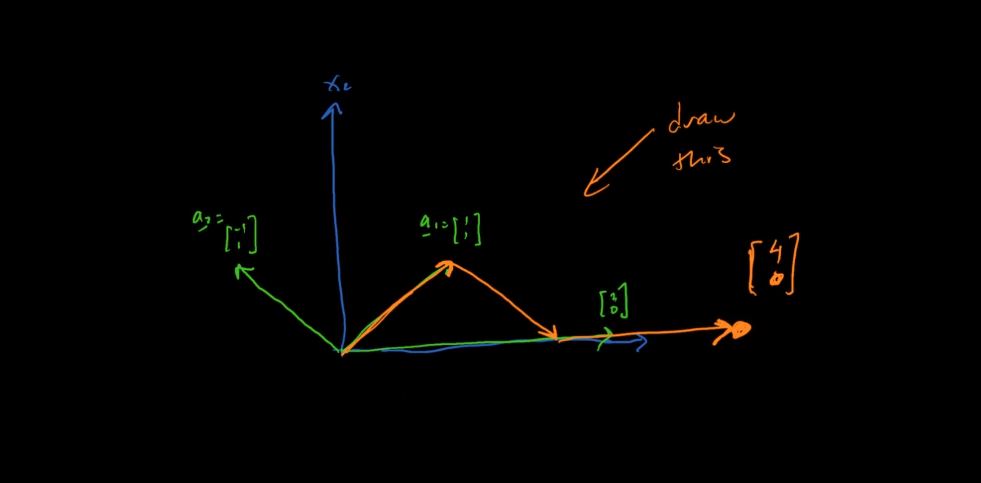 x₂
draw
this
a₂ = [-1 1]
a₁ = [1 1]
[4 0]
[2 0]